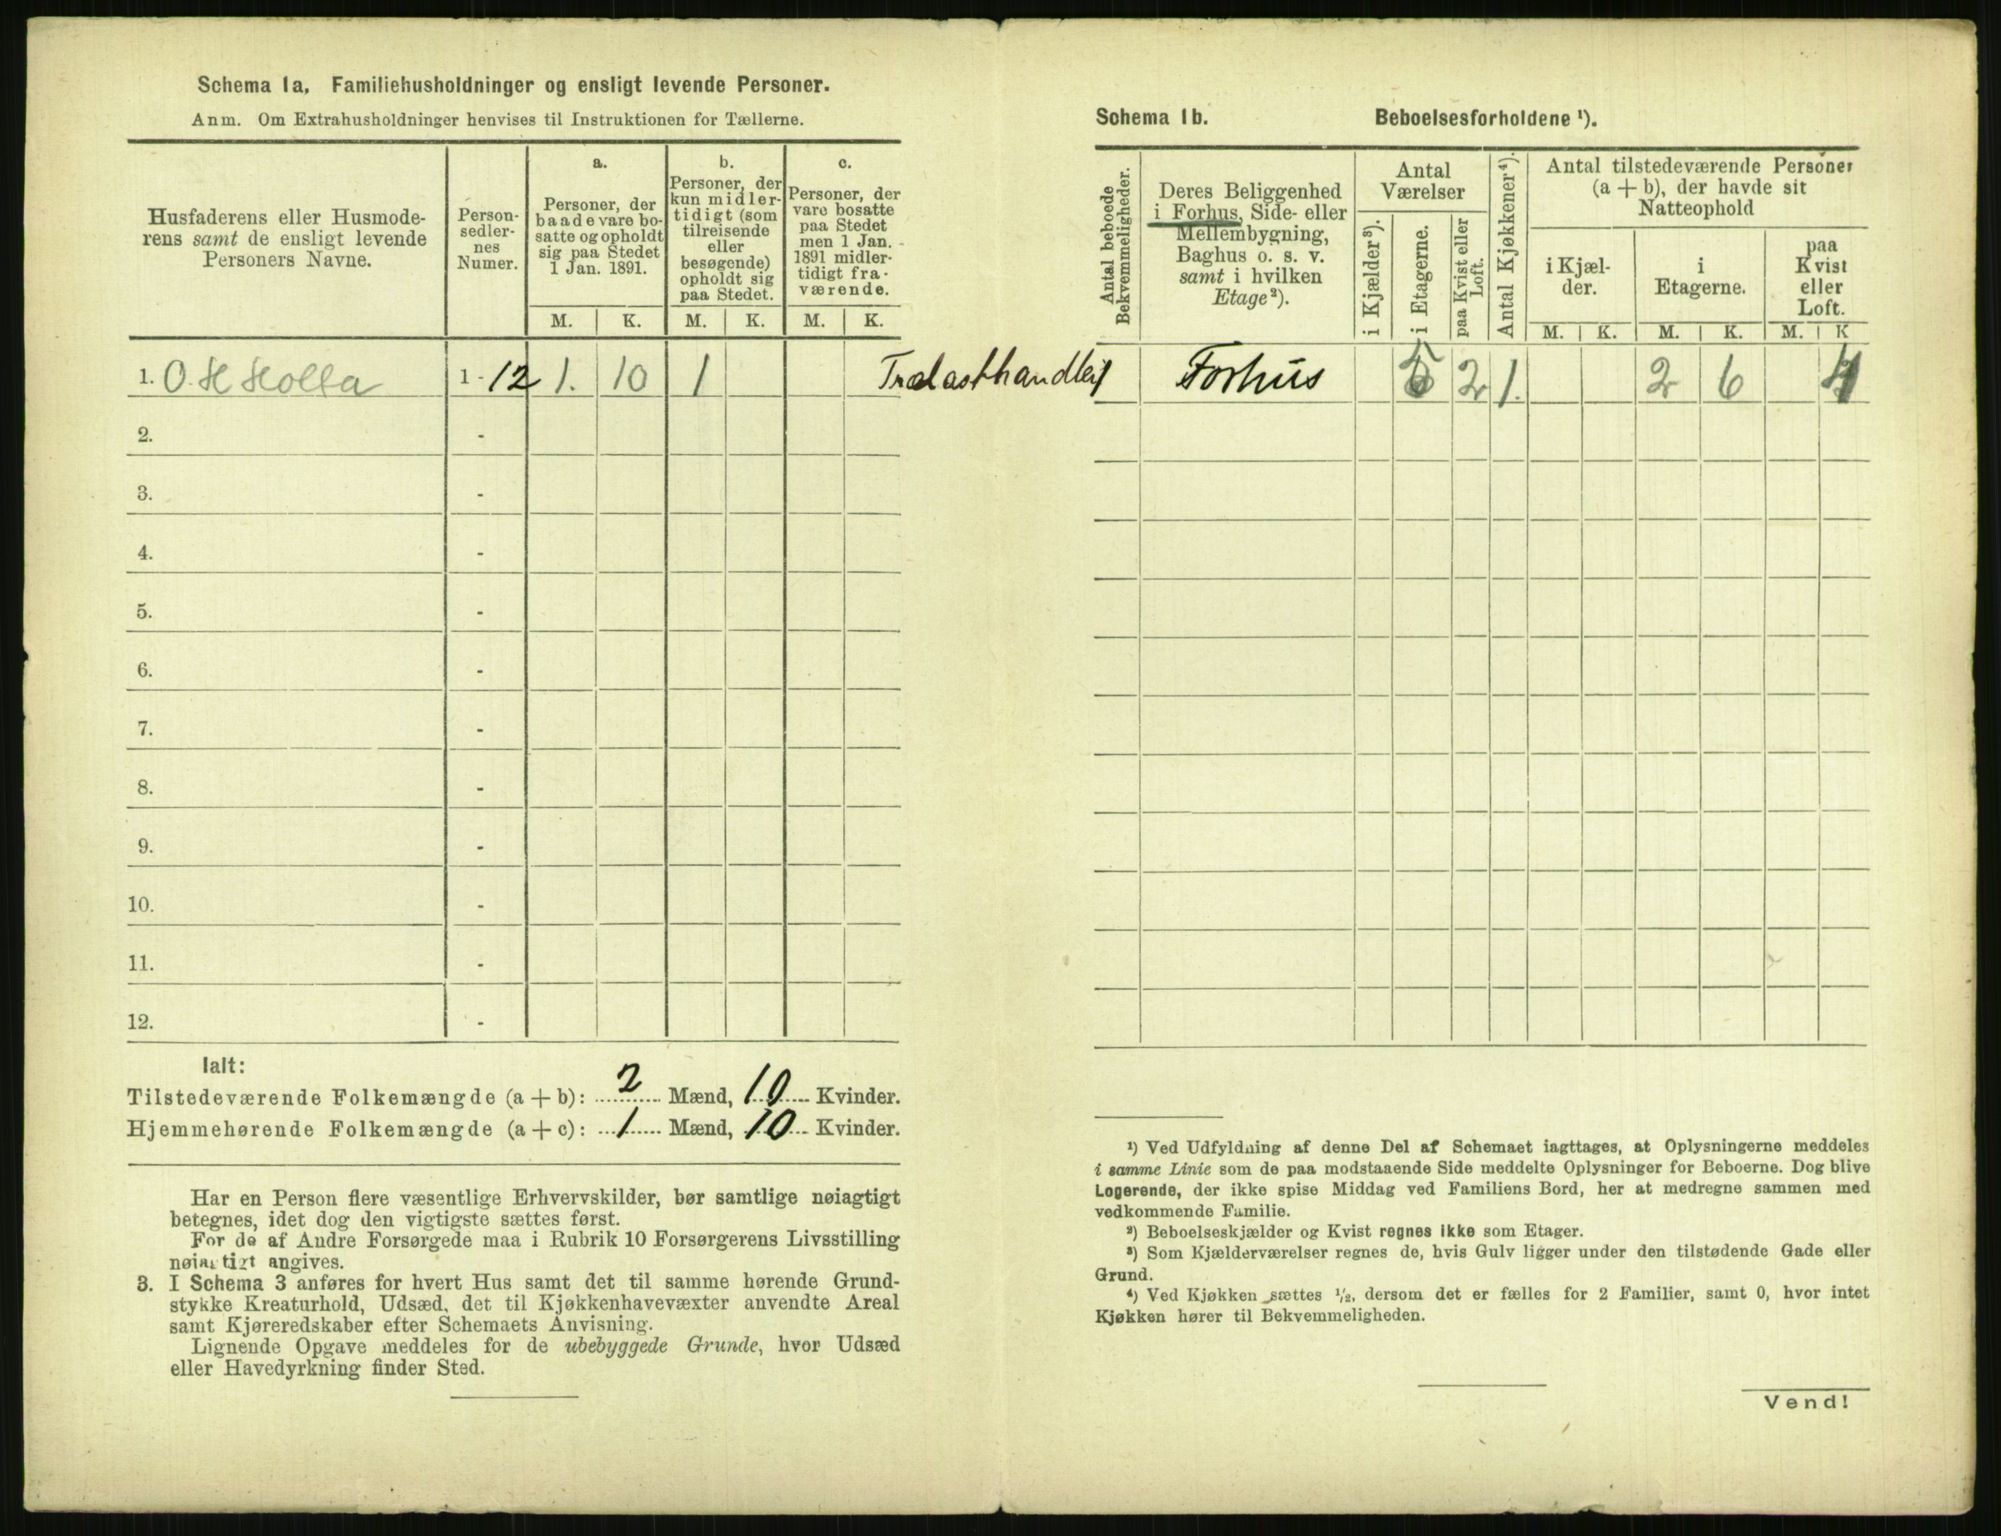 Schema 1a. Familiehusholdninger og ensligt levende Personer.
Anm. Om Extrahusholdninger henvises til Instruktionen for Tællerne.
Husfaderens eller Husmode-
rens samt de ensligt levende
Personers Navne.
Person-
sedler-
nes
Numer.
a.
Personer, der
baade vare bo-
satte og opholdt
sig paa Stedet
1 Jan. 1891.
b.
Personer, der
kun midler-
tidigt (som
tilreisende
eller
besøgende)
opholdt sig
paa Stedet.
c.
Personer, der
vare bosatte
paa Stedet
men 1 Jan.
1891 midler-
tidigt fra-
værende.
M. K. M. K. M. K.
1. O. H Holta 1 - 12 1. 10 1 Trælasthandler
2. -
3. -
4. -
5. -
6. -
7. -
8. -
9. -
10. -
11. -
12. -
Ialt:
Tilstedeværende Folkemængde (a + b): 2 Mænd, 10 Kvinder.
Hjemmehørende Folkemængde (a + c): 1 Mænd, 10 Kvinder.
Har en Person flere væsentlige Erhvervskilder, bør samtlige nøiagtigt
betegnes, idet dog den vigtigste sættes først.
For de af Andre Forsørgede maa i Rubrik 10 Forsørgerens Livsstilling
nøiagtigt angives.
3. I Schema 3 anføres for hvert Hus samt det til samme hørende Grund-
stykke Kreaturhold, Udsæd, det til Kjøkkenhavevæxter anvendte Areal
samt Kjøreredskaber efter Schemaets Anvisning.
Lignende Opgave meddeles for de ubebyggede Grunde, hvor Udsæd
eller Havedyrkning finder Sted.
Schema 1b. Beboelsesforholdene ¹).
Antal beboede
Bekvemmeligheder.
Deres Beliggenhed
i Forhus, Side- eller
Mellembygning,
Baghus o. s. v.
samt i hvilken
Etage²).
Antal
Værelser
i Kjælder³).
i Etagerne.
paa Kvist eller
Loft.
Antal Kjøkkener⁴).
Antal tilstedeværende Personer
(a + b), der havde sit
Natteophold
i Kjæl-
der.
i
Etagerne.
paa
Kvist
eller
Loft.
M. K. M. K. M. K
1 Forhus 2 1. 2 6 4
¹) Ved Udfyldning af denne Del af Schemaet iagttages, at Oplysningerne meddeles
i samme Linie som de paa modstaaende Side meddelte Oplysninger for Beboerne. Dog blive
Logerende, der ikke spise Middag ved Familiens Bord, her at medregne sammen med
vedkommende Familie.
²) Beboelseskjælder og Kvist regnes ikke som Etager.
³) Som Kjælderværelser regnes de, hvis Gulv ligger under den tilstødende Gade eller
Grund.
⁴) Ved Kjøkken sættes ½, dersom det er fælles for 2 Familier, samt 0, hvor intet
Kjøkken hører til Bekvemmeligheden.
Vend!